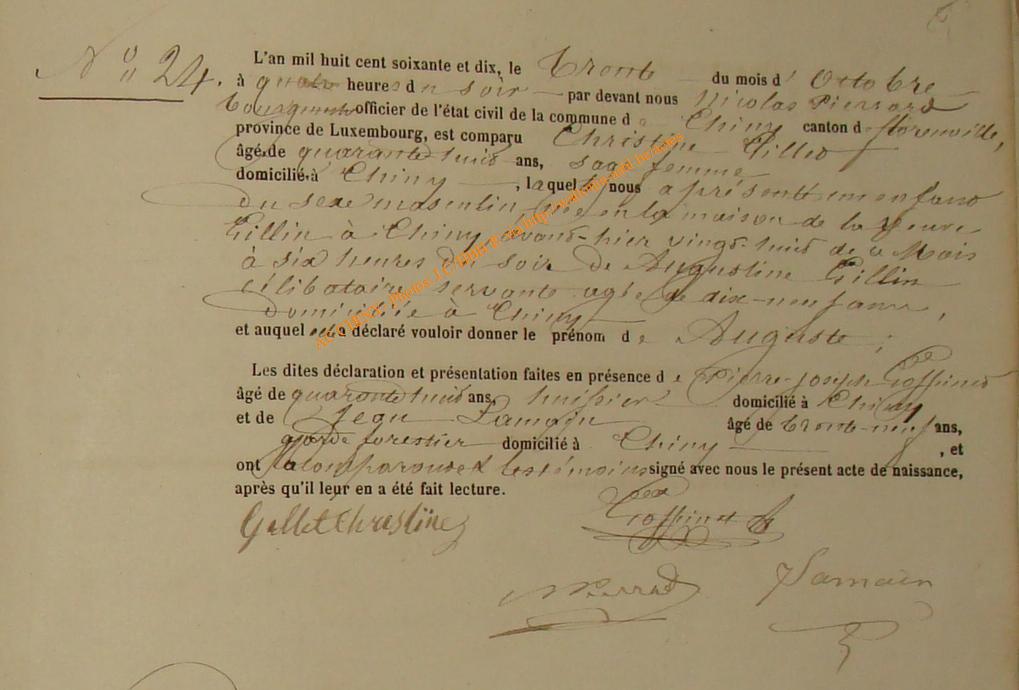 N° 24.
L'an mil huit cent soixante et dix, le trente du mois d'Octobre
à quatre heures du soir par devant nous Nicolas Pierrard
bourgmestre officier de l'état civil de la commune de Chiny canton de florenville,
province de Luxembourg, est comparu Christine Gillet
âgé de quarante huit ans, sage femme
domicilié à Chiny, laquelle nous a présenté un enfant
du sexe masculin née en la maison de la veuve
Gillin à Chiny avant-hier vingt-huit de ce Mois
à six heures du soir de Augustine Gillin
célibataire servante agée de dix-neuf ans,
domiciliée à Chiny
et auquel elle a déclaré vouloir donner le prénom de Auguste;
Les dites déclaration et présentation faites en présence de Pierre-Joseph Goffinet
âgé de quarante huit ans, huissier domicilié à Chiny
et de Jean Lamain âgé de trente-neuf ans,
garde forestier domicilié à Chiny, et
ont la comparante et les témoins signé avec nous le présent acte de naissance,
après qu'il leur en a été fait lecture.
Gillet Christine
Goffinet
Pierrard